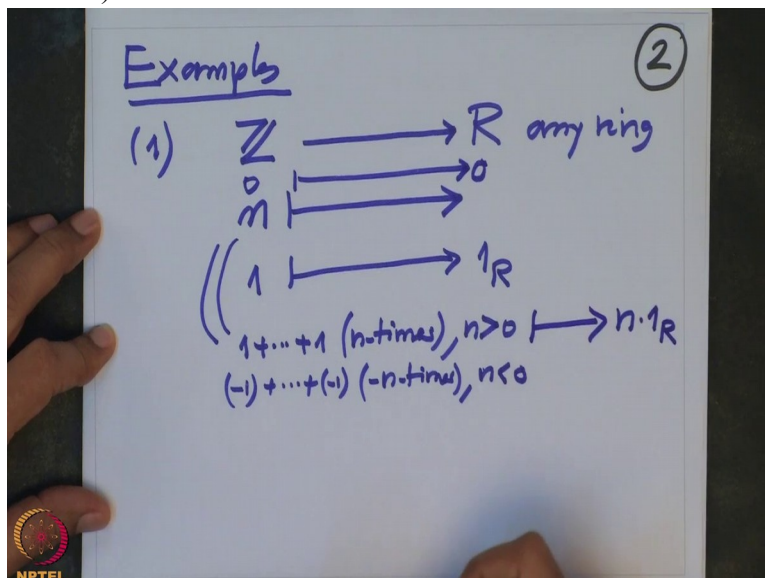 Examples
2
(1) ℤ ⟶ R any ring
0 ⟼ 0
n ⟼
(( 1 ⟼ 1_R
1+⋯+1 (n-times), n>0 ⟼ n·1_R
(-1)+⋯+(-1) (-n-times), n<0
NPTEL